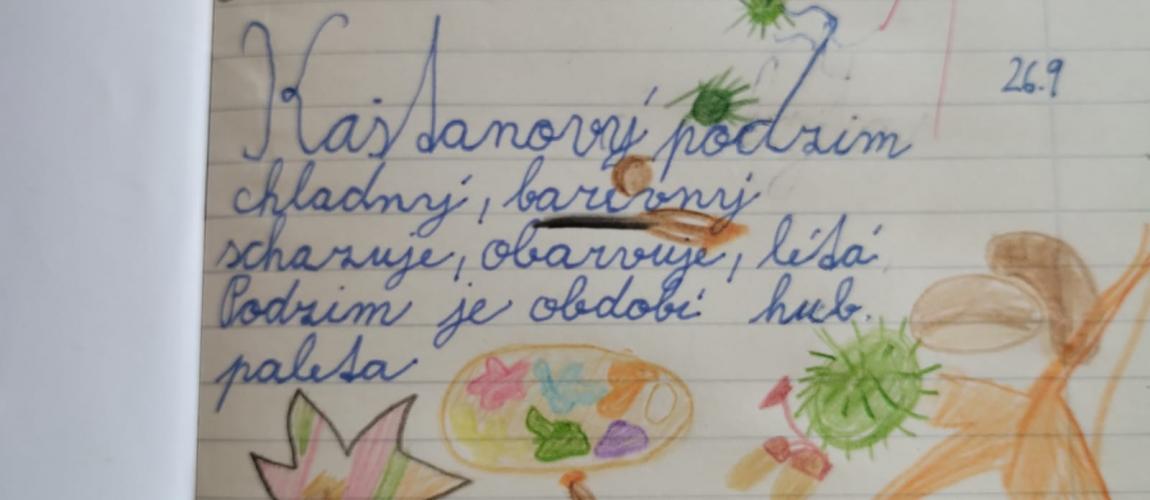 26.9
Kaštanový podzim
chladný, barevný
schazuje, obarvuje, létá
Podzim je období hub.
paleta